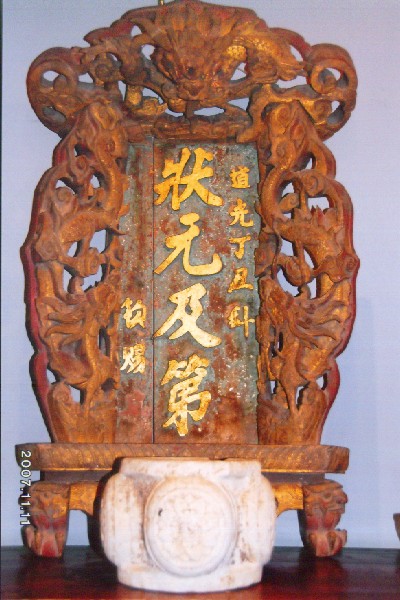 道光丁丑科
狀元及第
欽賜
2007.11.11